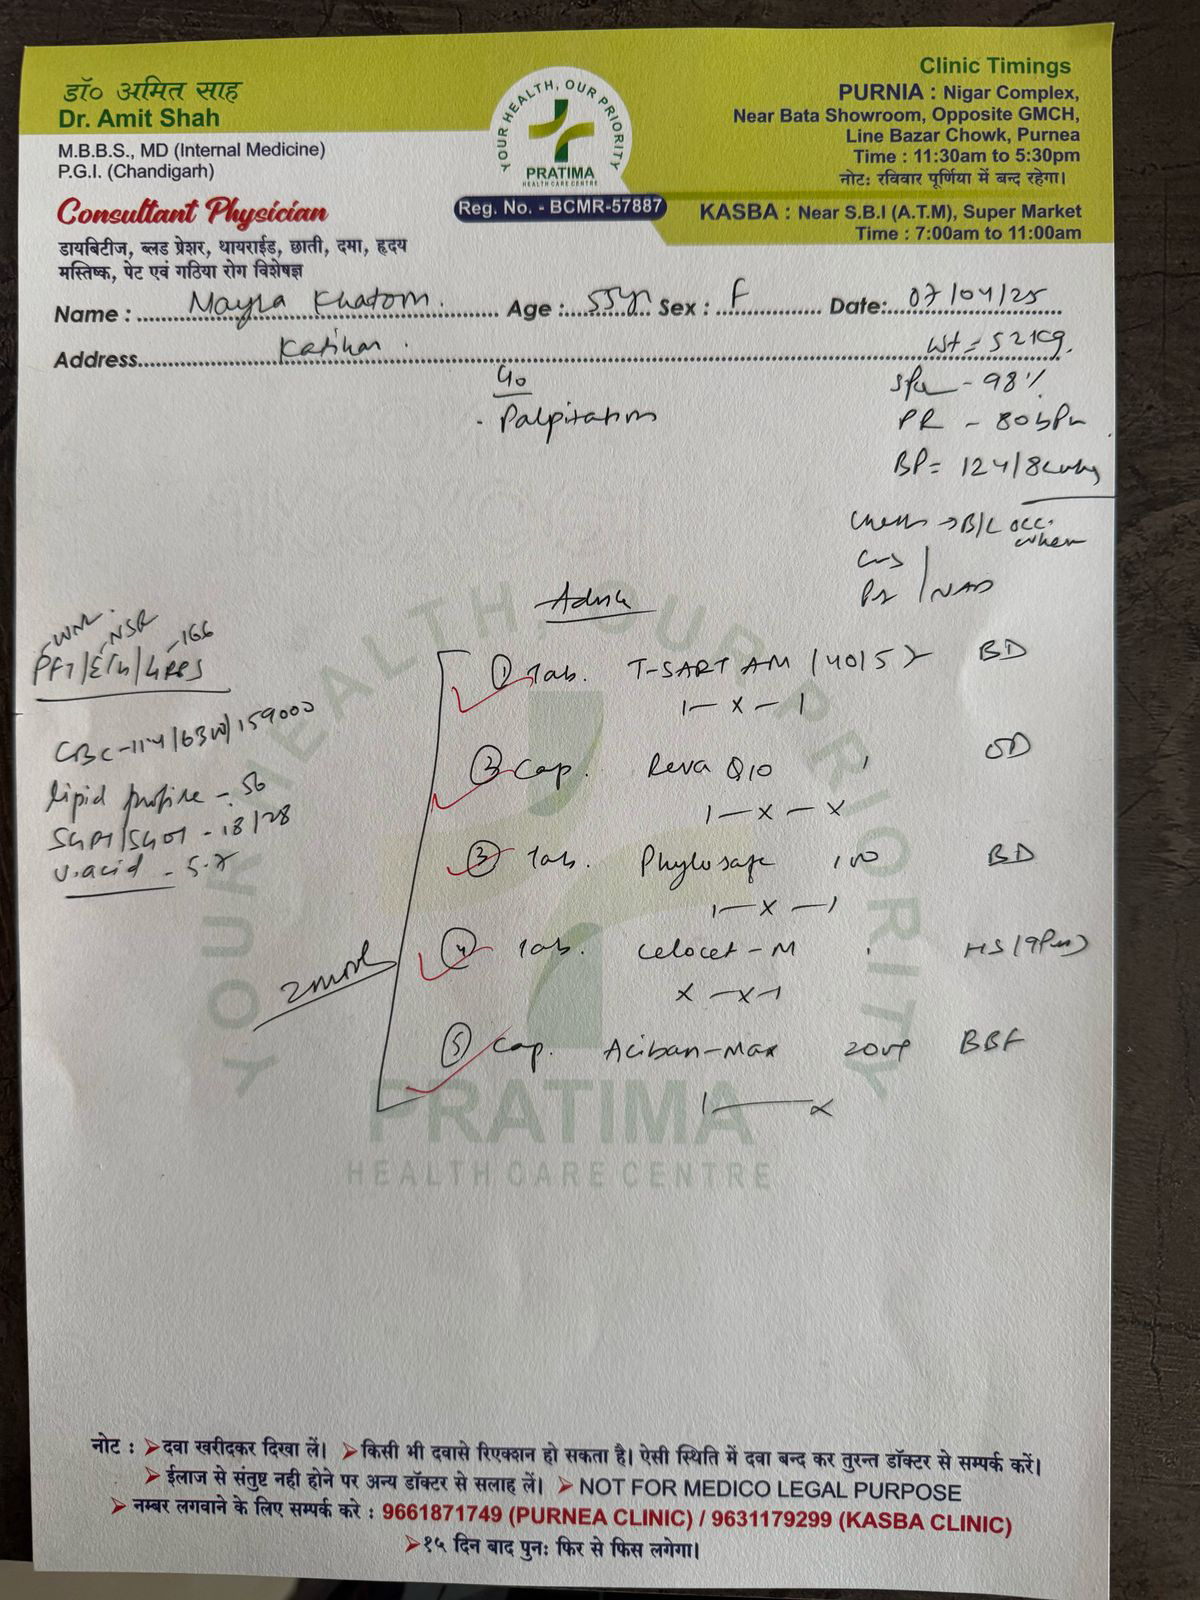 डॉ० अमित साह
Dr. Amit Shah
M.B.B.S., MD (Internal Medicine)
P.G.I. (Chandigarh)
Consultant Physician
डायबिटीज, ब्लड प्रेशर, थायराईड, छाती, दमा, हृदय
मस्तिष्क, पेट एवं गठिया रोग विशेषज्ञ
YOUR HEALTH, OUR PRIORITY
PRATIMA
HEALTH CARE CENTRE
Reg. No. - BCMR-57887
Clinic Timings
PURNIA : Nigar Complex,
Near Bata Showroom, Opposite GMCH,
Line Bazar Chowk, Purnea
Time : 11:30am to 5:30pm
नोट: रविवार पूर्णिया में बन्द रहेगा।
KASBA : Near S.B.I (A.T.M), Super Market
Time : 7:00am to 11:00am
Name : Khatom Age : 55yr Sex : F Date: 07/04/25
Address Katihar
Wt = 52kg.
- 98%
PR - 80 bpm
BP = 124/
C/o
- Palpitation
Chest → B/L occ.
NAD
WNL NSR 166
CBC - 159000
lipid profile - 56
SGPT/SGOT - 18/28
U.acid - 5.7
① Tab. T-SART AM (40/5) BD
1 - x - 1
② Cap. Reva Q10 OD
1 - x - x
③ Tab. Phylosafe 100 BD
1 - x - 1
④ Tab. Celocet-M HS (9Pm)
x - x - 1
⑤ Cap. Aciban-Max BBF
1 - x
YOUR HEALTH, OUR PRIORITY
PRATIMA
HEALTH CARE CENTRE
नोट : ➤दवा खरीदकर दिखा लें। ➤किसी भी दवासे रिएक्शन हो सकता है। ऐसी स्थिति में दवा बन्द कर तुरन्त डॉक्टर से सम्पर्क करें।
➤ईलाज से संतुष्ट नही होने पर अन्य डॉक्टर से सलाह लें। ➤ NOT FOR MEDICO LEGAL PURPOSE
➤ नम्बर लगवाने के लिए सम्पर्क करे : 9661871749 (PURNEA CLINIC) / 9631179299 (KASBA CLINIC)
➤१५ दिन बाद पुन: फिर से फिस लगेगा।